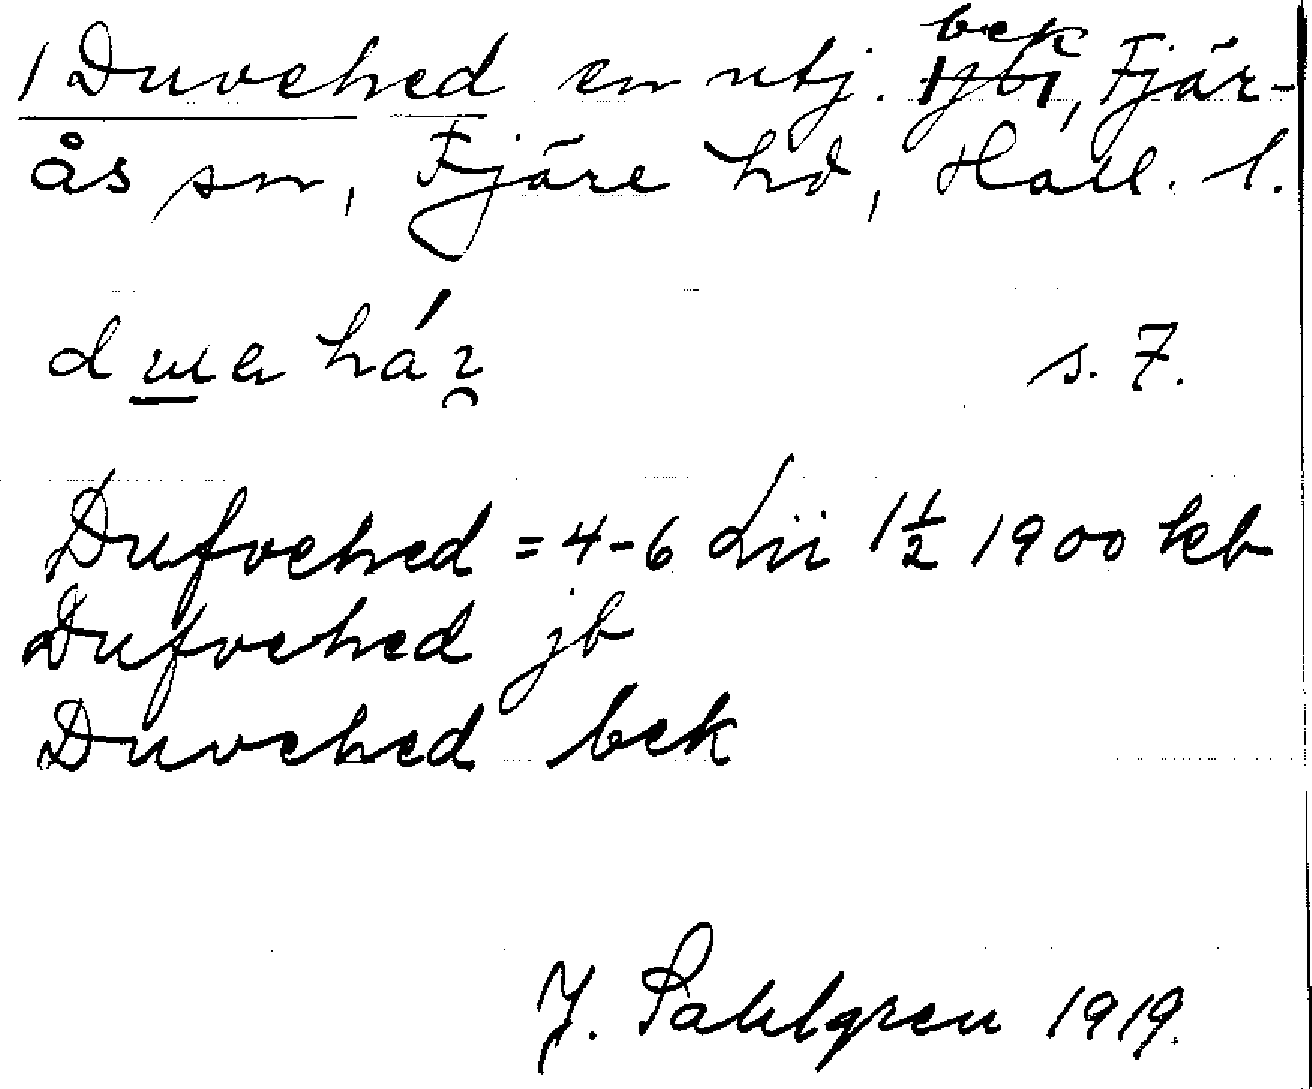 bek
1 Duvehed en utj. jb, Fjär-
ås sn, Fjäre hd, Hall. l.
s. 7.
Dufvehed = 4-6 Lii 1½ 1900 kb
Dufvehed jb
Duvehed bek
J. Sahlgren 1919.